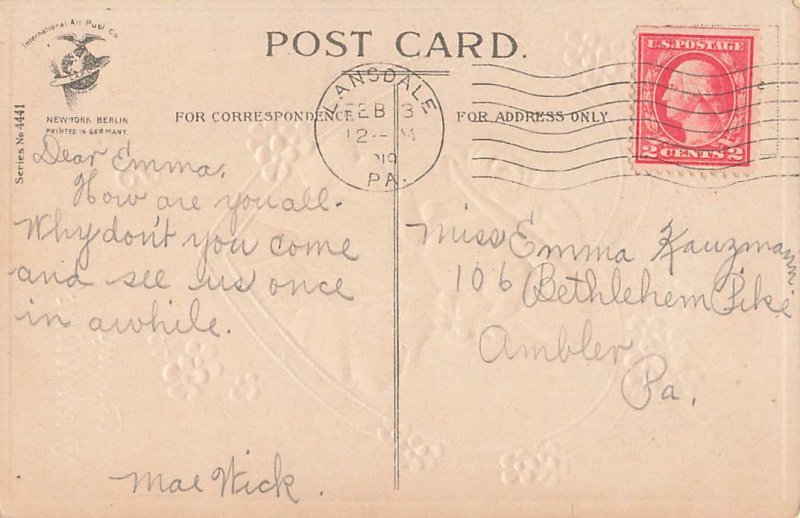 International Art Publ. Co.
NEW-YORK BERLIN
PRINTED IN GERMANY.
Series No. 4441
POST CARD.
FOR CORRESPONDENCE
FOR ADDRESS ONLY.
LANSDALE
FEB 3
12- M
PA.
U.S. POSTAGE
2 CENTS 2
Dear Emma.
How are you all.
Why don't you come
and see us once
in awhile.
Mae Wick.
Miss Emma Kauzmann.
106 Bethlehem Pike
Ambler
Pa.